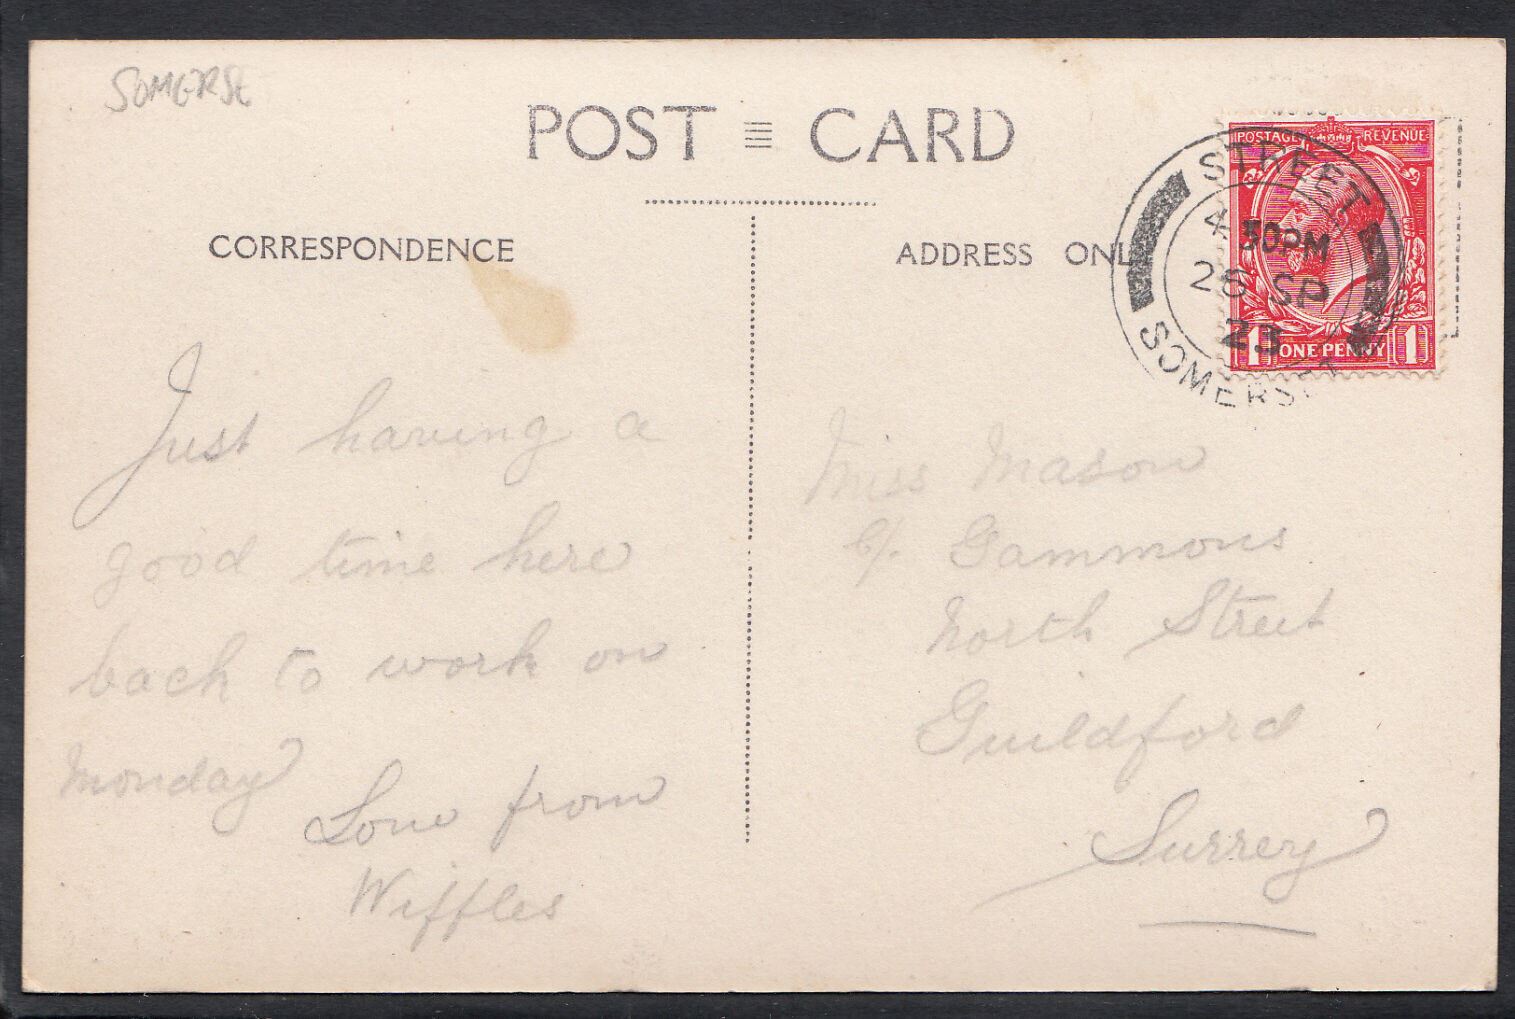 SOMERSE
POST CARD
CORRESPONDENCE
ADDRESS ONLY
POSTAGE REVENUE
1 ONE PENNY 1
STREET
4 30PM
28 SP
23
SOMERSET
Just having a
good time here
back to work on
Monday
Love from
Wiffles
Miss Mason
c/. Gammons
North Street
Guildford
Surrey